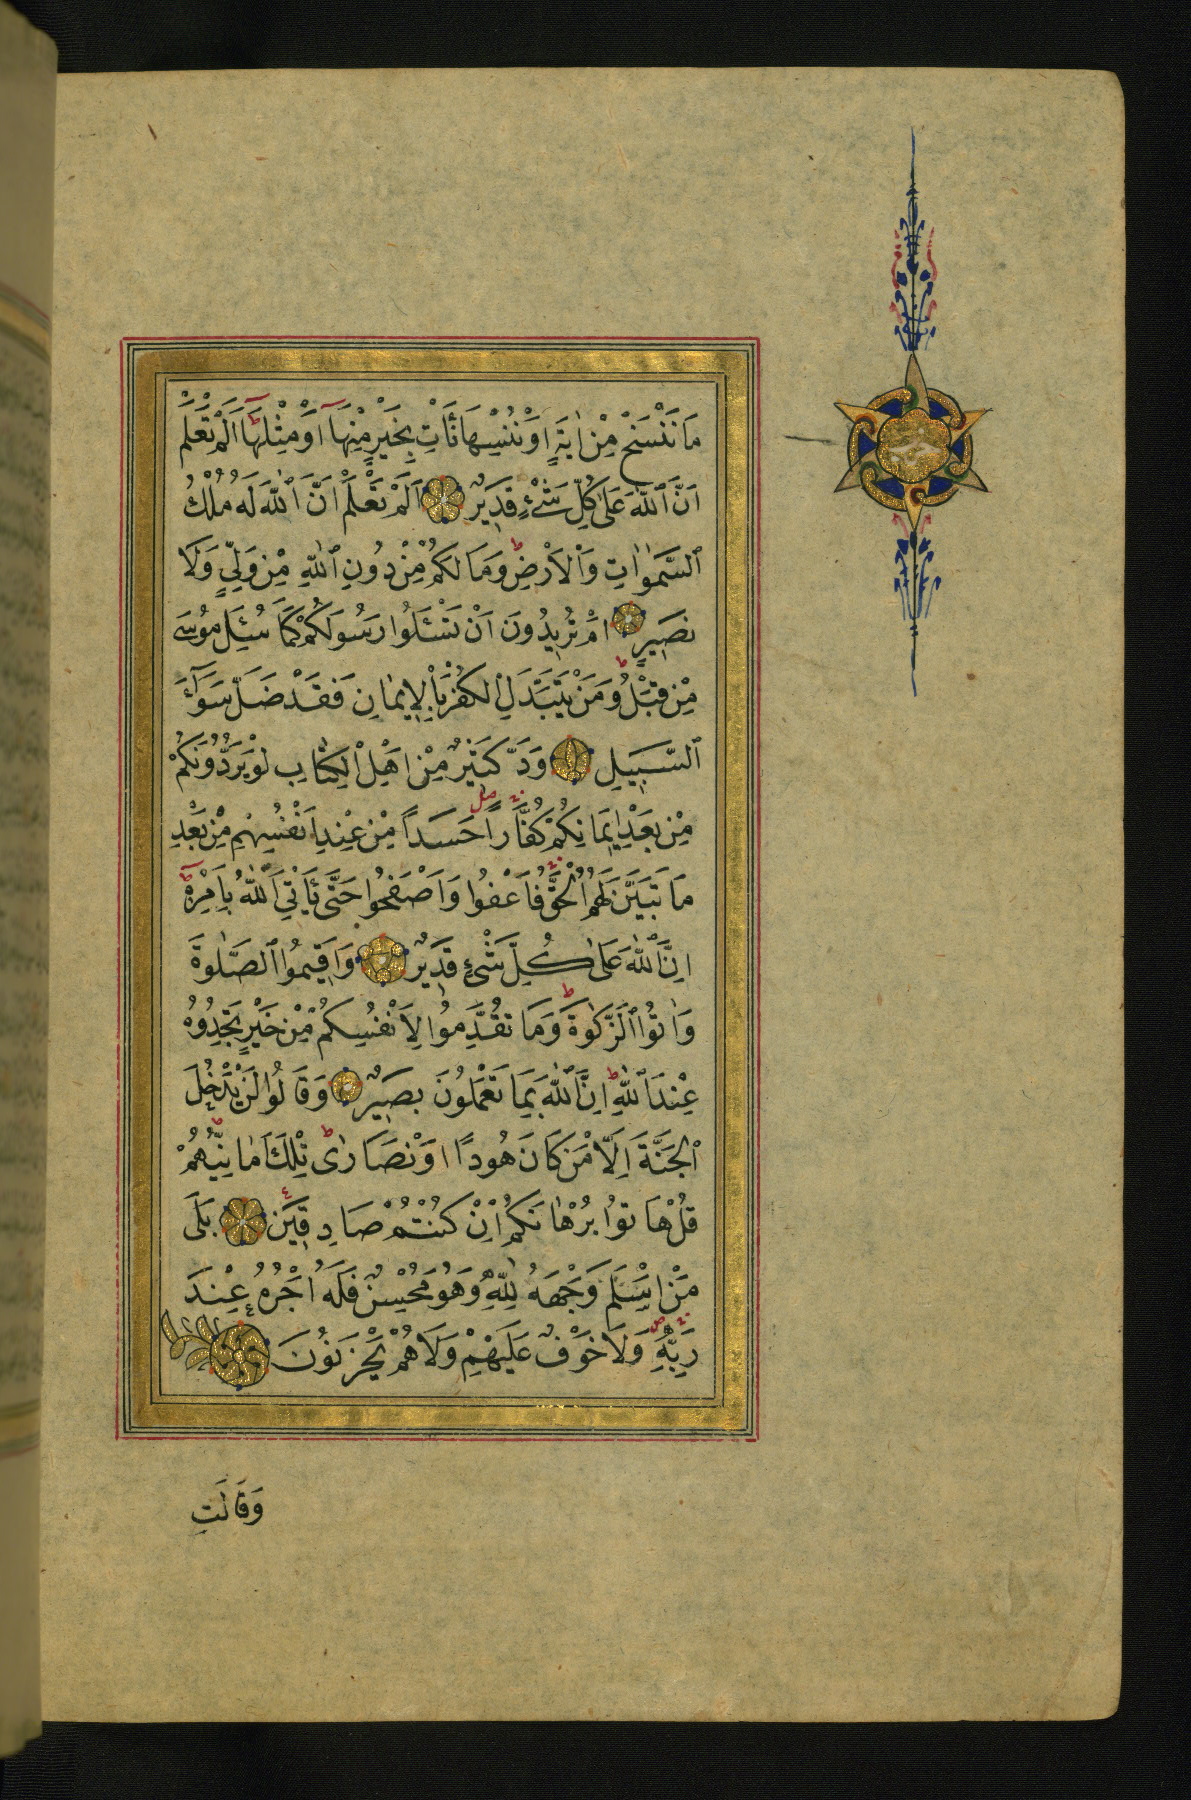 مَا نَنْسَخْ مِنْ اٰيَةٍ اَوْ نُنْسِهَا نَأْتِ بِخَيْرٍ مِنْهَا اَوْ مِثْلِهَا اَلَمْ تَعْلَمْ
اَنَّ ٱللّٰهَ عَلٰى كُلِّ شَىْءٍ قَدِيرٌ اَلَمْ تَعْلَمْ اَنَّ ٱللّٰهَ لَهُ مُلْكُ
ٱلسَّمٰوَاتِ وَٱلْاَرْضِ وَمَا لَكُمْ مِنْ دُونِ ٱللّٰهِ مِنْ وَلِيٍّ وَلَا
نَصِيرٍ اَمْ تُرِيدُونَ اَنْ تَسْئَلُوا رَسُولَكُمْ كَمَا سُئِلَ مُوسَى
مِنْ قَبْلُ وَمَنْ يَتَبَدَّلِ الْكُفْرَ بِالْإِيمَانِ فَقَدْ ضَلَّ سَوَآءَ
ٱلسَّبِيلِ وَدَّ كَثِيرٌ مِنْ اَهْلِ الْكِتَابِ لَوْ يَرُدُّونَكُمْ
مِنْ بَعْدِ اِيمَانِكُمْ كُفَّارًا حَسَدًا مِنْ عِنْدِ اَنْفُسِهِمْ مِنْ بَعْدِ
مَا تَبَيَّنَ لَهُمُ الْحَقُّ فَاعْفُوا وَاصْفَحُوا حَتَّى يَأْتِيَ ٱللّٰهُ بِاَمْرِهِ
اِنَّ ٱللّٰهَ عَلٰى كُلِّ شَىْءٍ قَدِيرٌ وَاَقِيمُوا ٱلصَّلٰوةَ
وَاٰتُوا ٱلزَّكٰوةَ وَمَا تُقَدِّمُوا لِاَنْفُسِكُمْ مِنْ خَيْرٍ تَجِدُوهُ
عِنْدَ ٱللّٰهِ اِنَّ ٱللّٰهَ بِمَا تَعْمَلُونَ بَصِيرٌ وَقَالُوا لَنْ يَدْخُلَ
ٱلْجَنَّةَ اِلَّا مَنْ كَانَ هُودًا اَوْ نَصَارٰى تِلْكَ اَمَانِيُّهُمْ
قُلْ هَاتُوا بُرْهَانَكُمْ اِنْ كُنْتُمْ صَادِقِينَ بَلَى
مَنْ اَسْلَمَ وَجْهَهُ لِلّٰهِ وَهُوَ مُحْسِنٌ فَلَهُ اَجْرُهُ عِنْدَ
رَبِّهِ وَلَا خَوْفٌ عَلَيْهِمْ وَلَا هُمْ يَحْزَنُونَ
وَقَالَتِ